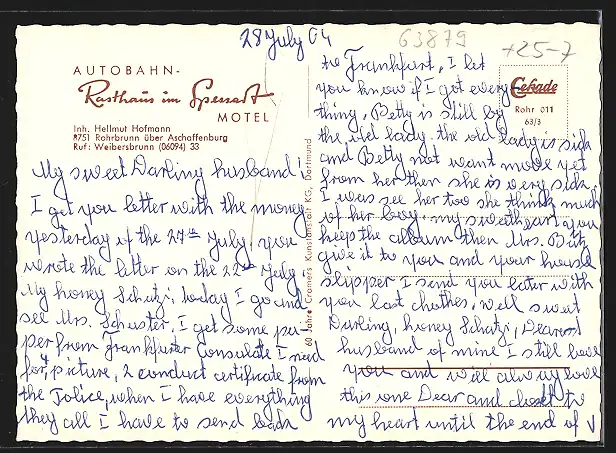 28 July 64
63879
+25-7
AUTOBAHN-
Rasthaus im Spessart
MOTEL
Inh. Hellmut Hofmann
8751 Rohrbrunn über Aschaffenburg
Ruf: Weibersbrunn (06094) 33
My sweet Darling husband!
I get you letter with the money
yesterday of the 27th July, you
wrote the letter on the 22nd July.
My honey Schatzi, today I go and
see Mrs. Schuster, I get some pa
per from Frankfurter Consulate I need
for 4 picture, 2 conduct certificate from
the Police, when I have everything
they all I have to send back
60 Jahre Cramers Kunstanstalt KG, Dortmund
Cekade
Rohr 011
63/3
to Frankfurt, I let
you know if I got every
thing, Betty is still by
the old lady, the old lady is sick
and Betty not want move yet
from her then she is very sick,
I was see her too she think much
of her boy, my sweetheart you
keep the album then Mrs.
give it to you and your house
slipper I send you later with
you last clothes, well sweet
Darling, honey Schatzi, Dearest
husband of mine I still love
you and will always love
this one Dear and closet to
my heart until the end of